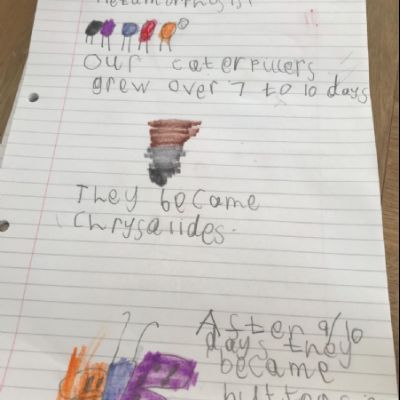 Our caterpullers
grew over 7 to 10 days
They became
Chrysalides.
After 9/10
days they
became